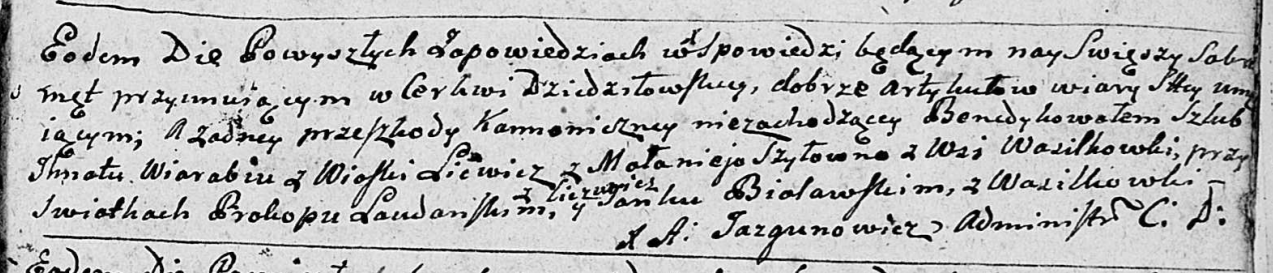 Eodem Die Powyszłych Zapowiedziach w Spowiedzi będącym nay Swięszy Sakra
męt przyimuiącym w Cerkwi Dziedziłowskiey, dobrze Artykułow wiary Stey umi
iącym; A żadney przeszkody Kannoniczney niezachodzącey Benedykowałem Szlub
Ihnatu Wiarabiu z Wioski Liewicz z Małanieją Szyłowno z Wsi Wasilkowki, przy
Swiatkach Prokopu Laudanskim, z Liczewicz y Janku Bialawskim, z Wasilkowki –
X A: Jazgunowicz Administr C: D:
Eodem Die